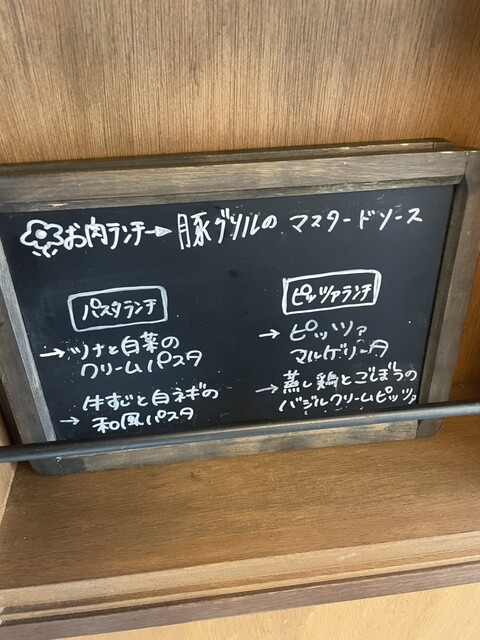 お肉ランチ→豚グリルの マスタードソース
パスタランチ
→ツナと白菜の
クリームパスタ
牛すじと白ネギの
→和風パスタ
ピッツァランチ
→ピッツァ
マルゲリータ
→蒸し鶏とごぼうの
バジルクリームピッツァ